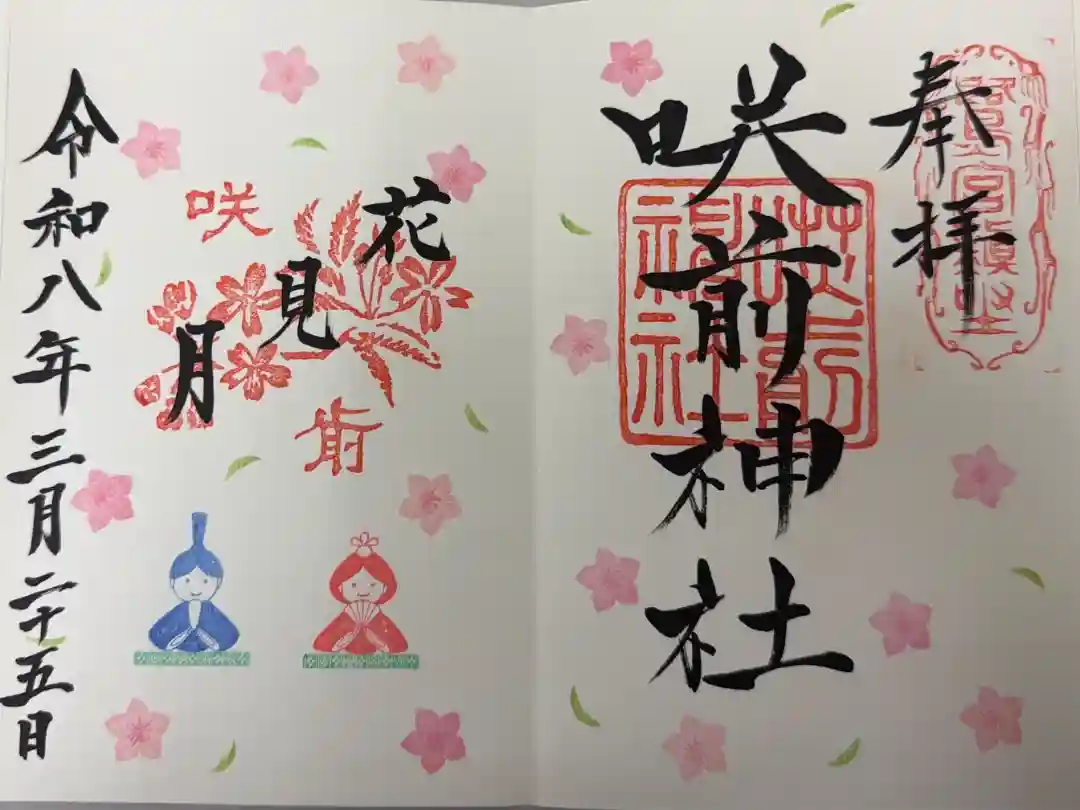 奉拝
咲前神社
咲前神社
花見月
咲
前
令和八年三月二十五日